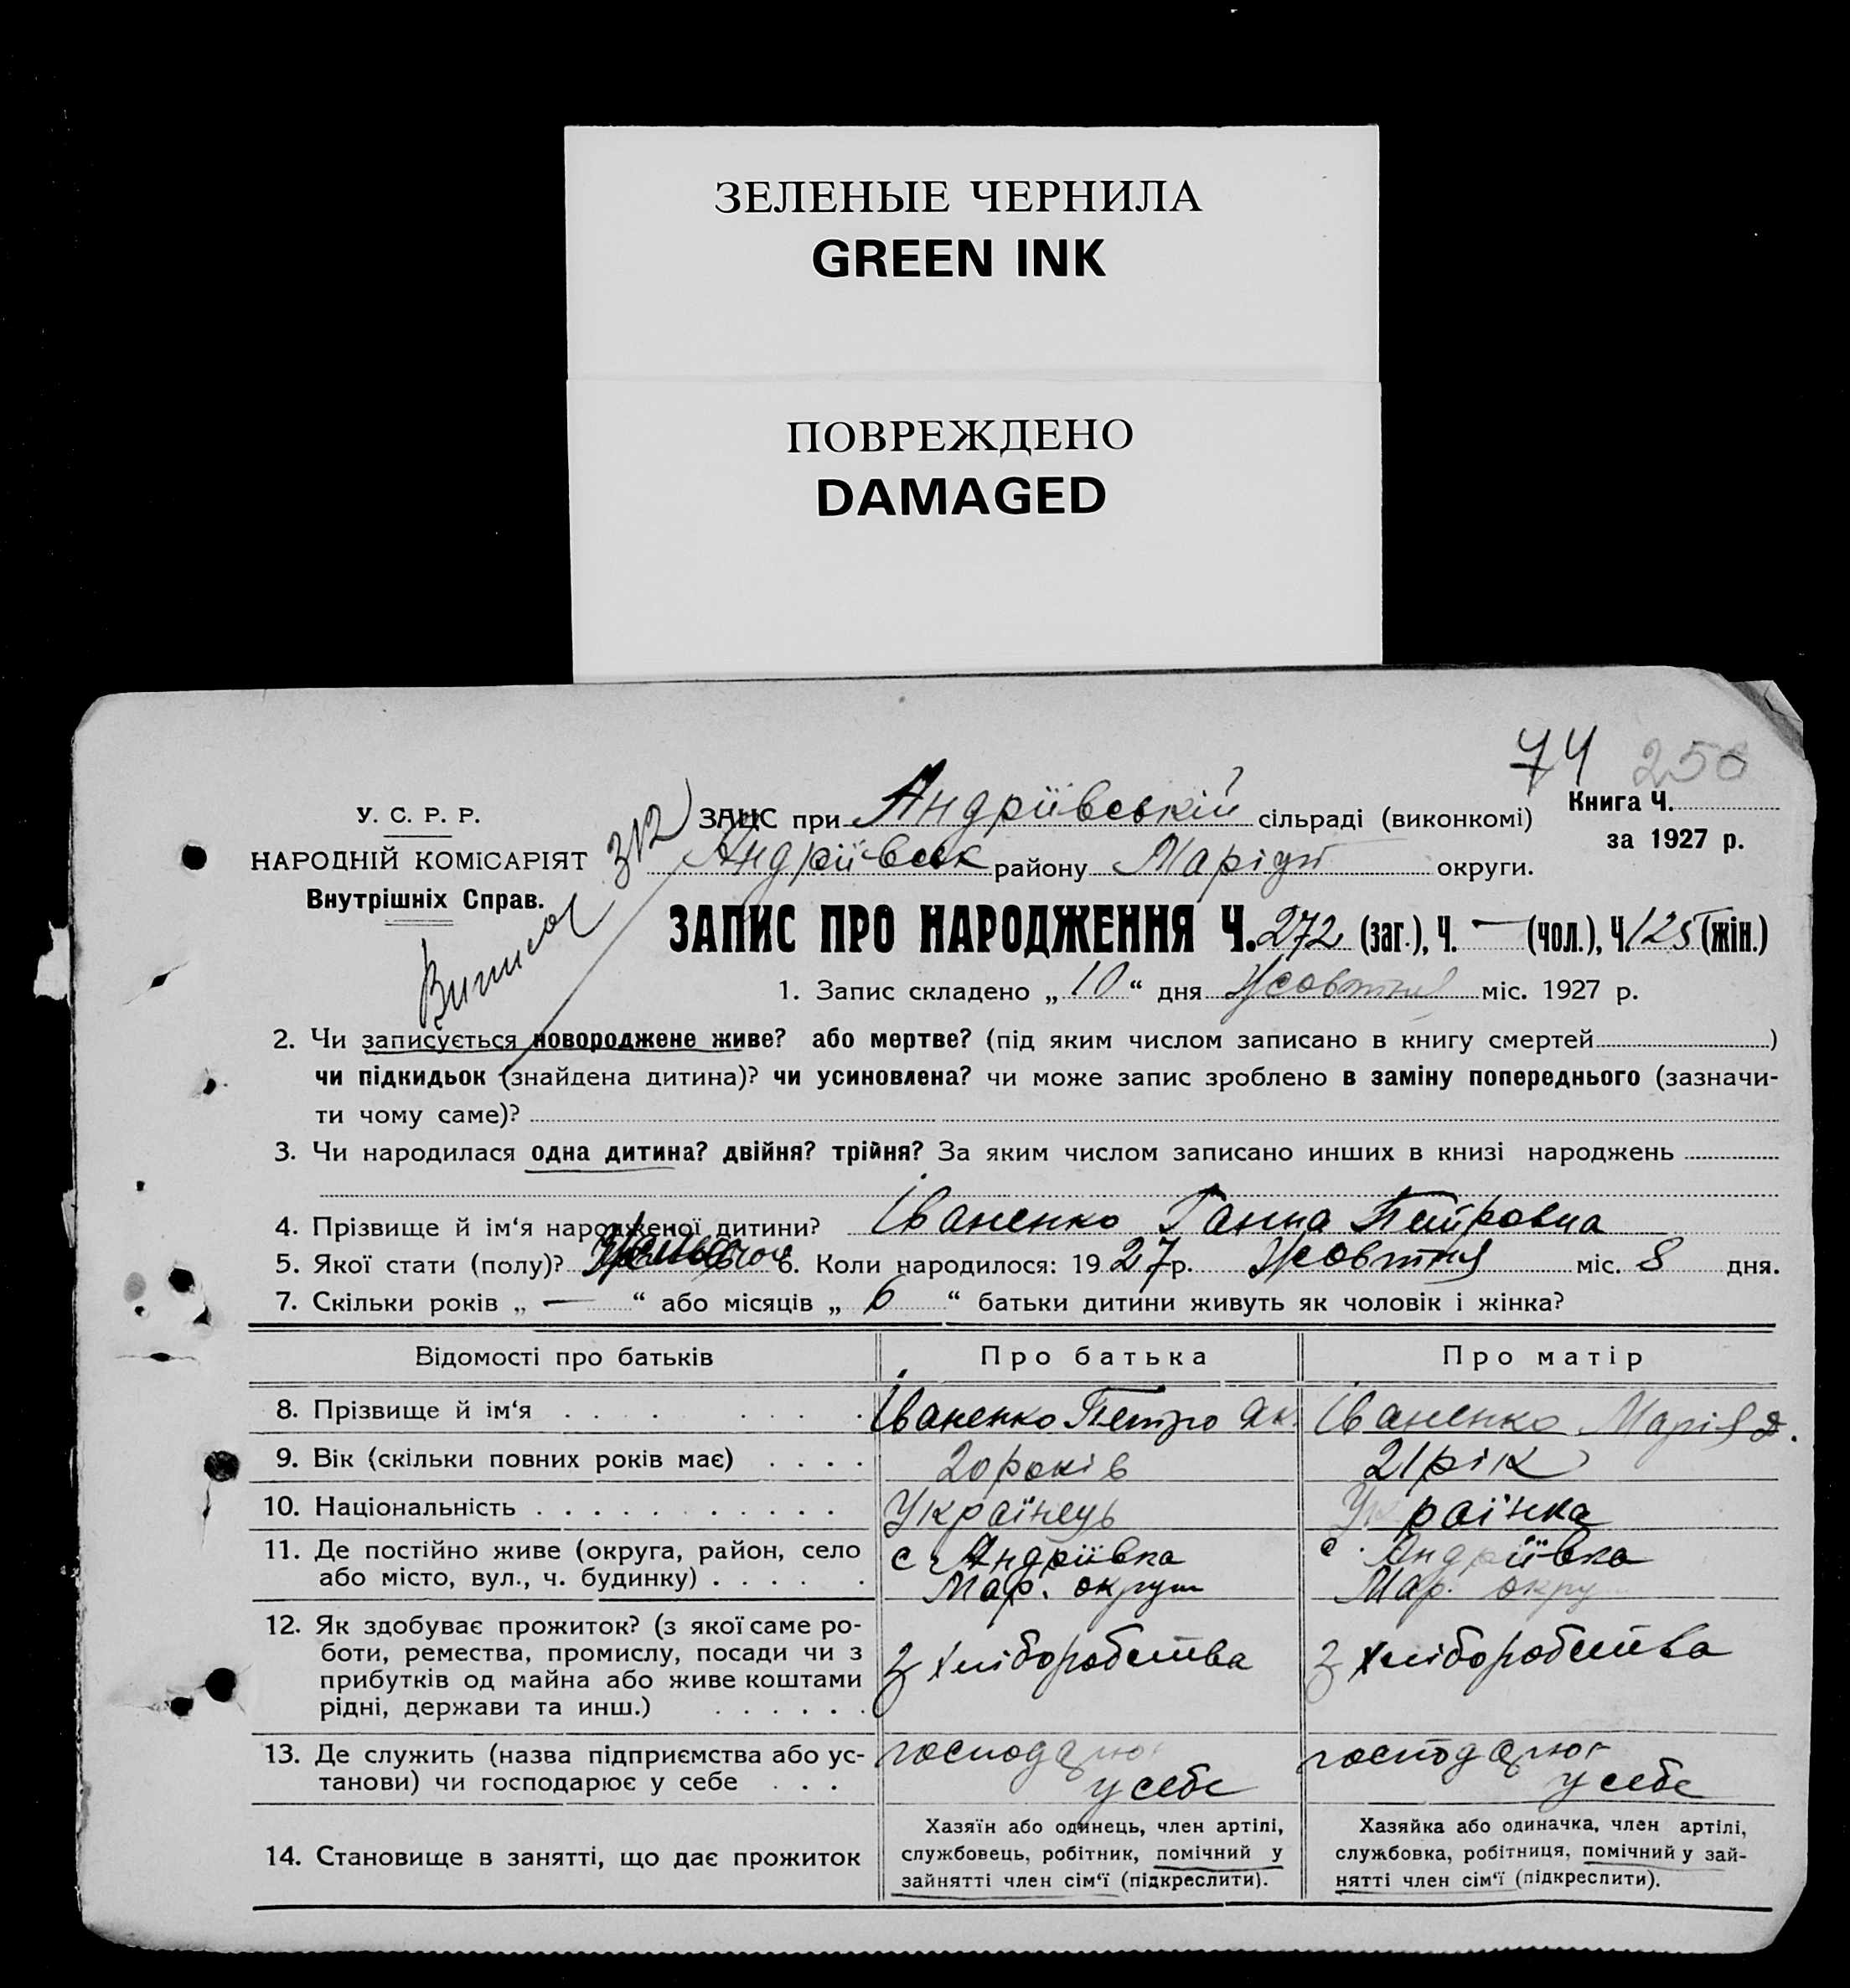 ЗЕЛЕНЫЕ ЧЕРНИЛА
GREEN INK
ПОВРЕЖДЕНО
DAMAGED
74 250
У. С. Р. Р.
НАРОДНІЙ КОМІСАРІЯТ
Внутрішніх Справ.
312
ЗАЦС при Андріївській сільраді (виконкомі)
Книга Ч.
за 1927 р.
Андріївськ району Маріуп округи.
ЗАПИС ПРО НАРОДЖЕННЯ Ч. 272 (заг.), Ч. — (чол.), Ч. 125 (жін.)
1. Запис складено „ 10 “ дня Жовтня міс. 1927 р.
2. Чи записується новороджене живе? або мертве? (під яким числом записано в книгу смертей )
чи підкидьок (знайдена дитина)? чи усиновлена? чи може запис зроблено в заміну попереднього (зазначи-
ти чому саме)?
3. Чи народилася одна дитина? двійня? трійня? За яким числом записано инших в книзі народжень
4. Прізвище й ім‘я народженої дитини? Іваненко Ганна Петровна
5. Якої стати (полу)? 6. Коли народилося: 1927 р. Жовтня міс. 8 дня.
7. Скільки років „ — “ або місяців „ 6 “ батьки дитини живуть як чоловік і жінка?
Відомості про батьків Про батька Про матір
8. Прізвище й ім‘я Іваненко Петро Як. Іваненко Марія Д.
9. Вік (скільки повних років має) 20 років 21 рік
10. Національність Українець Українка
11. Де постійно живе (округа, район, село
або місто, вул., ч. будинку)
с. Андріївка
Мар. округи
с. Андріївка
Мар. округи
12. Як здобуває прожиток? (з якої саме ро-
боти, ремества, промислу, посади чи з
прибутків од майна або живе коштами
рідні, держави та инш.)
З хліборобства
З хліборобства
13. Де служить (назва підприємства або ус-
танови) чи господарює у себе
господарює
у себе
господарює
у себе
14. Становище в занятті, що дає прожиток
Хазяїн або одинець, член артілі,
службовець, робітник, помічний у
зайнятті член сім‘ї (підкреслити).
Хазяйка або одиначка, член артілі,
службовка, робітниця, помічний у зай-
нятті член сім‘ї (підкреслити).